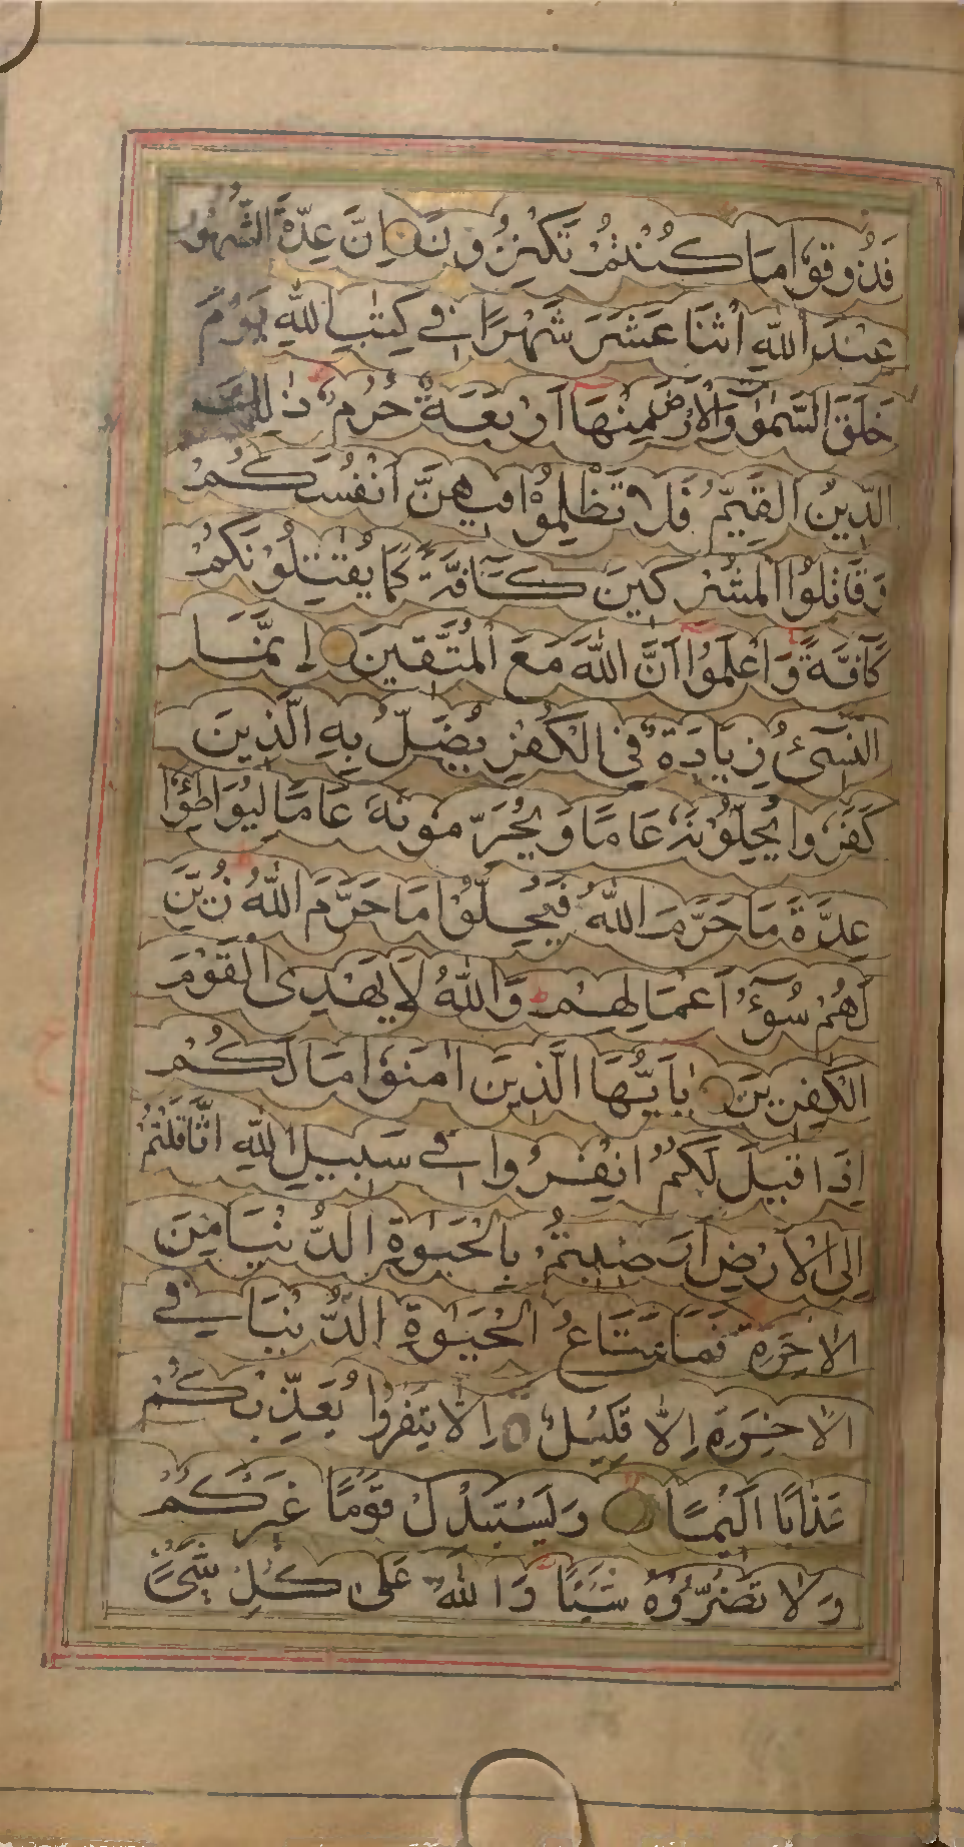 فَذُوقُوا مَا كُنْتُمْ تَكْنِزُونَ اِنَّ عِدَّةَ الشُّهُوْ
عِنْدَ اللّٰهِ اثْنَا عَشَرَ شَهْرًا فِي كِتٰبِ اللّٰهِ يَوْمَ
خَلَقَ السَّمٰوٰتِ وَالْاَرْضَ مِنْهَا اَرْبَعَةٌ حُرُمٌ ذٰلِكَ
الدِّيْنُ الْقَيِّمُ فَلَا تَظْلِمُوْا فِيهِنَّ اَنْفُسَكُمْ
وَقَاتِلُوا الْمُشْرِكِينَ كَآفَّةً كَمَا يُقٰتِلُوْنَكُمْ
كَآفَّةً وَاعْلَمُوْا اَنَّ اللّٰهَ مَعَ الْمُتَّقِينَ اِنَّمَا
النَّسِيْٓءُ زِيَادَةٌ فِي الْكُفْرِ يُضَلُّ بِهِ الَّذِينَ
كَفَرُوا يُحِلُّوْنَهُ عَامًا وَيُحَرِّمُونَهُ عَامًا لِيُوَاطِئُوْا
عِدَّةَ مَا حَرَّمَ اللّٰهُ فَيُحِلُّوْا مَا حَرَّمَ اللّٰهُ زُيِّنَ
لَهُمْ سُوْٓءُ اَعْمَالِهِمْ وَاللّٰهُ لَا يَهْدِى الْقَوْمَ
الْكٰفِرِينَ يٰاَيُّهَا الَّذِينَ اٰمَنُوْا مَا لَكُمْ
اِذَا قِيلَ لَكُمُ انْفِرُوا فِي سَبِيلِ اللّٰهِ اثَّاقَلْتُمْ
اِلَى الْاَرْضِ اَرَضِيتُمْ بِالْحَيٰوةِ الدُّنْيَا مِنَ
الْاٰخِرَةِ فَمَا مَتَاعُ الْحَيٰوةِ الدُّنْيَا فِي
الْاٰخِرَةِ اِلَّا قَلِيْلٌ اِلَّا تَنْفِرُوا يُعَذِّبْكُمْ
عَذَابًا اَلِيْمًا وَيَسْتَبْدِلْ قَوْمًا غَيْرَكُمْ
وَلَا تَضُرُّوْهُ شَيْئًا وَاللّٰهُ عَلٰى كُلِّ شَيْءٍ